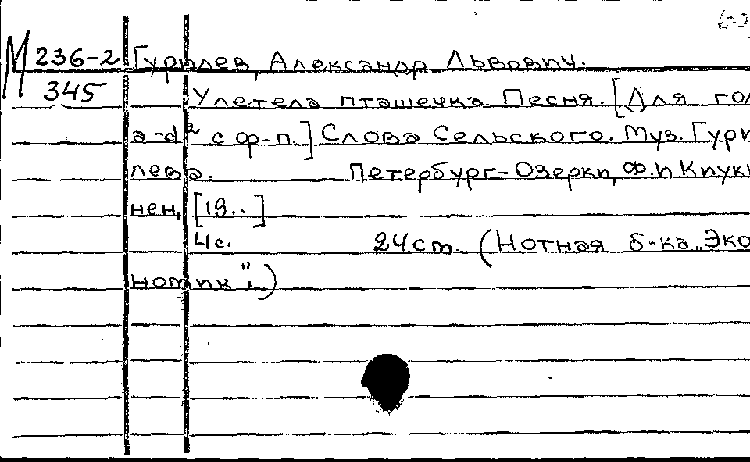 М 236-2 Гурилев, Александр Львович.
345 Улетела пташечка Песня. [Для гол
a-d² с ф-п.] Слова Сельского. Муз. Гури
лева. Петербург-Озерки, Ф. И Клуки
нен, [19..]
4 с. 24 cm. (Нотная б-ка „Эко
номик".)